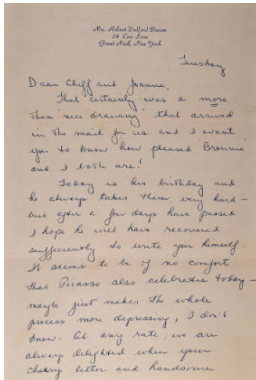 Mrs. Robert Dalford Brown
24 Cow Lane
Great Neck, New York
Tuesday
Dear Cliff and Joanna,
That certainly was a more
than "nice drawing" that arrived
in the mail for us and I want
you to know how pleased Brownie
and I both are!
Today is his birthday and
he always takes them very hard —
but after a few days have passed
I hope he will have recovered
sufficiently to write you himself.
It seems to be of no comfort
that Picasso also celebrates today —
maybe just makes the whole
process more depressing, I don't
know. At any rate, we are
always delighted when your
cheery letter and handsome